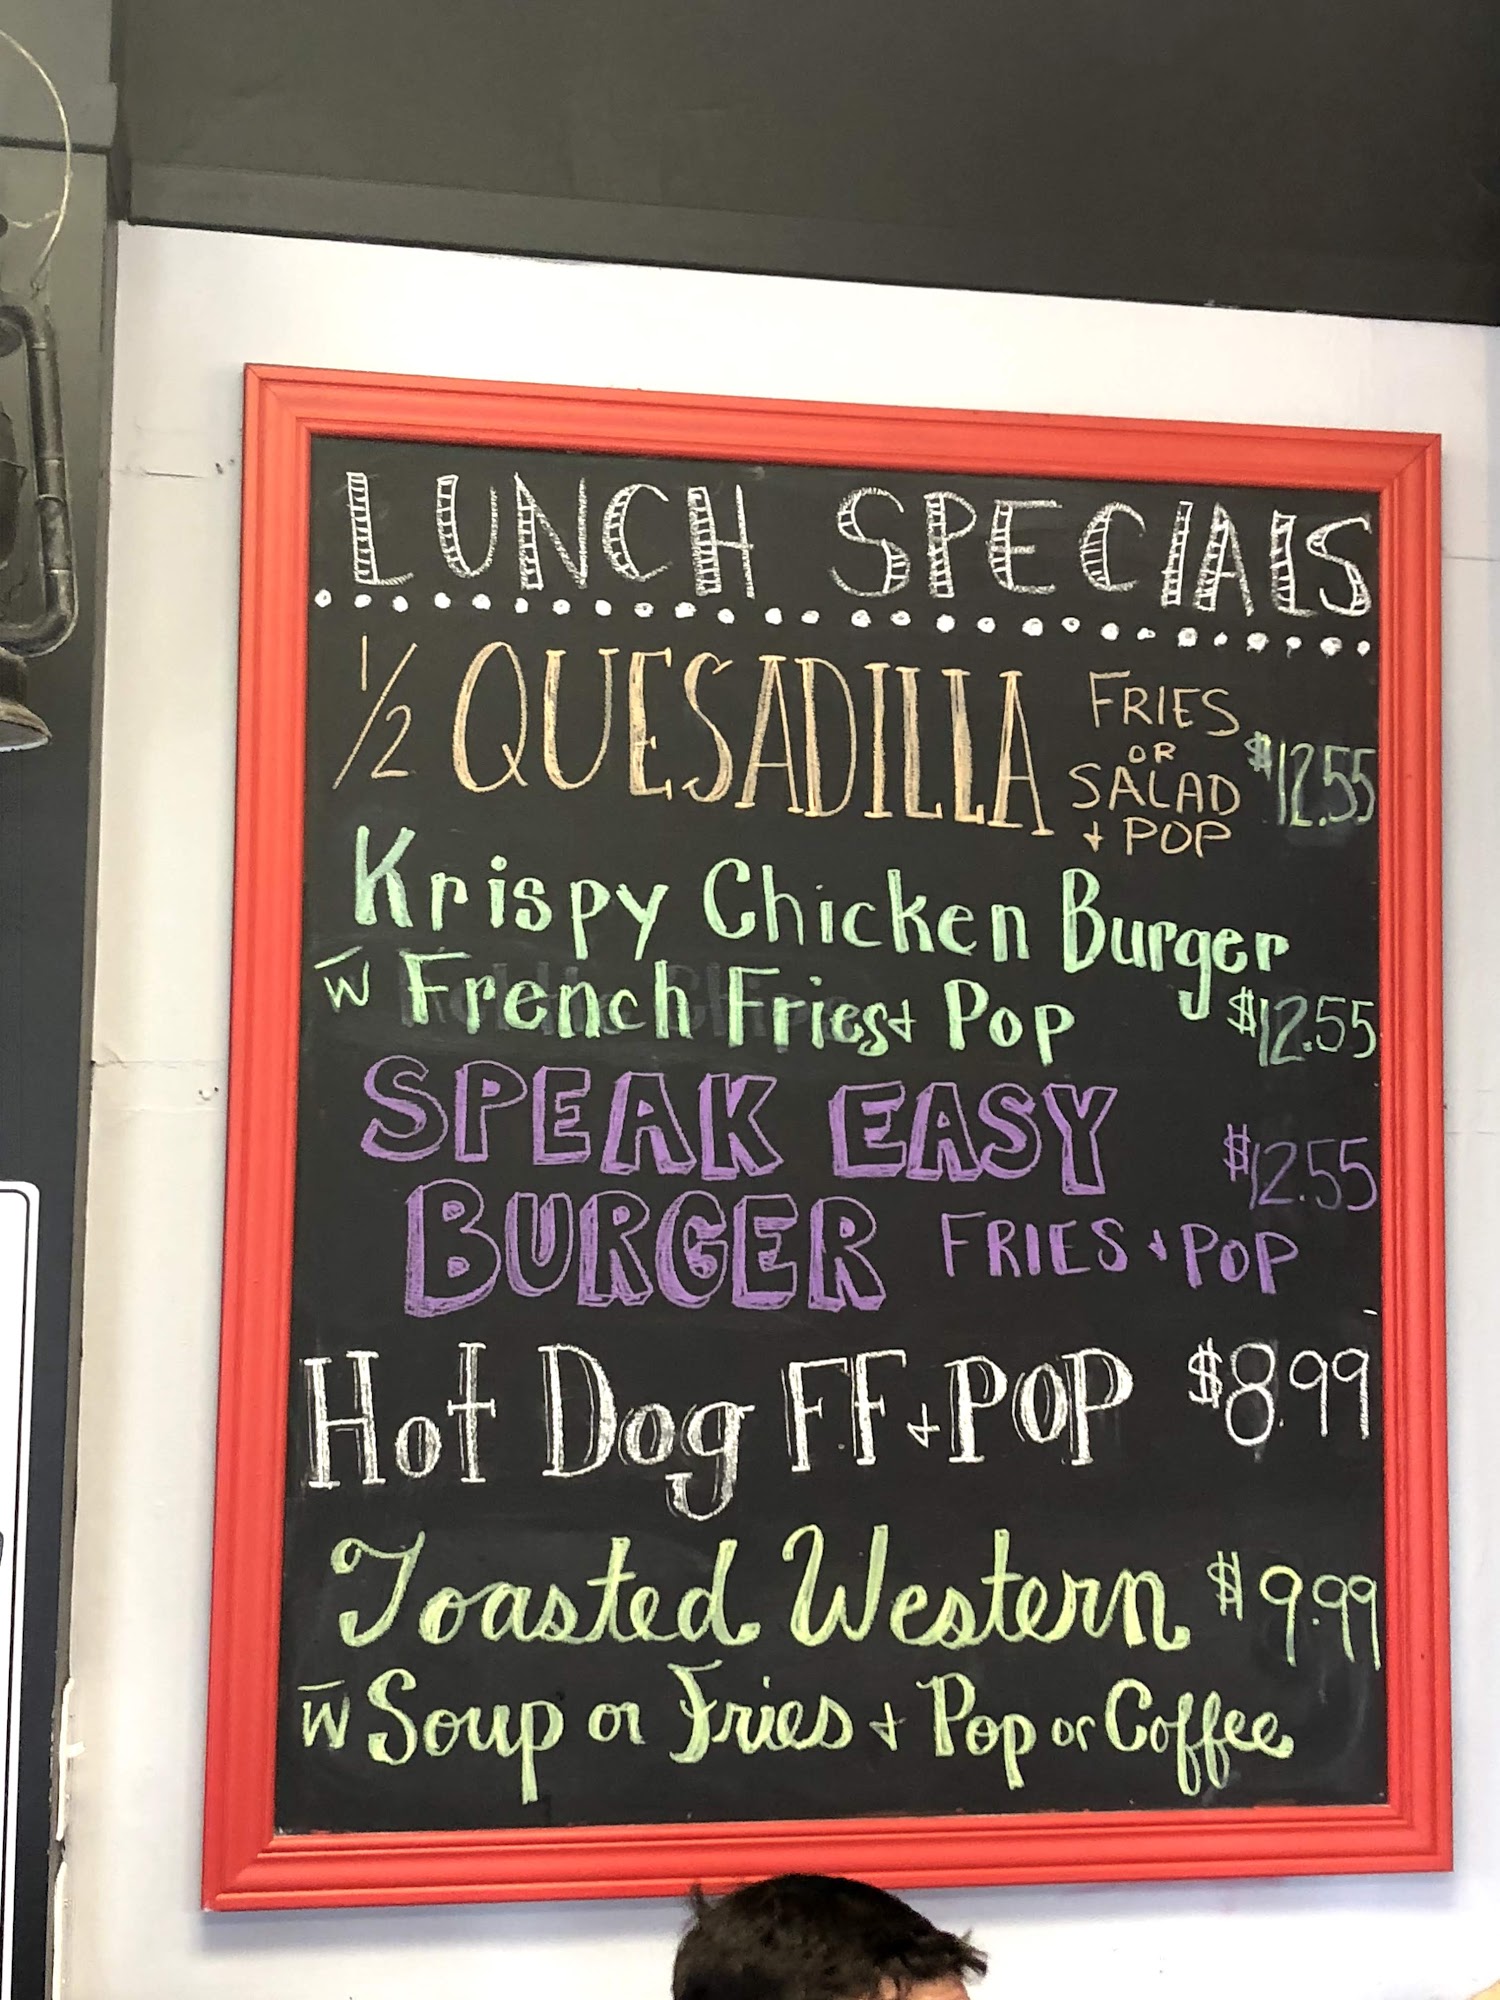 LUNCH SPECIALS
1/2 QUESADILLA FRIES
OR
SALAD
+ POP
$12.55
Krispy Chicken Burger
w French Fries + Pop $12.55
SPEAK EASY
BURGER FRIES + POP
$12.55
Hot Dog FF + POP $8.99
Toasted Western $9.99
w Soup or Fries + Pop or Coffee